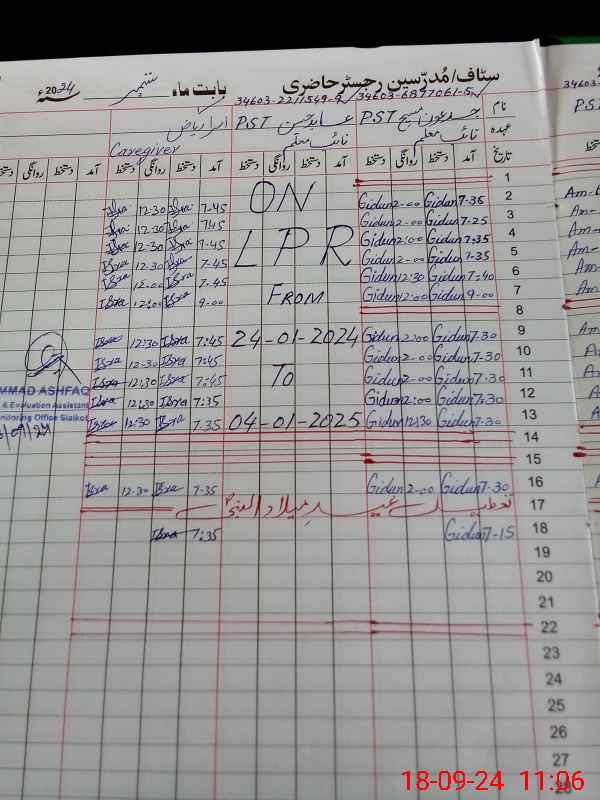 سٹاف/مُدرّسین رجسٹر حاضری بابت ماہ ستمبر 2024ء سنہ
34603-2211549-9 34603-6897061-5
نام
P.S.T عابد حسن P.S.T
عہدہ نائب معلم نائب معلم Caregiver
تاریخ آمد دستخط روانگی دستخط آمد دستخط روانگی دستخط آمد دستخط روانگی دستخط
1
Ibra 12-30 Ibra 7-45 ON Gidun 2-00 Gidun 7-35 2
Ibra 12-30 Ibra 7:45 Gidun 2-00 Gidun 7-25 3
Ibra 12-30 Ibra 7-45 LPR Gidun 2:00 Gidun 7:35 4
Ibra 12-30 Ibra 7-45 Gidun 2-00 Gidun 7-35 5
Ibra 12-00 Ibra 7-45 Gidun 12:30 Gidun 7-40 6
Ibra 12:00 Ibra 9-00 FROM Gidun 12:00 Gidun 9-00 7
8
Ibra 12:30 Ibra 7:45 24-01-2024 Gidun 2:00 Gidun 7-30 9
Ibra 12-30 Ibra 7:45 Gidun 2-00 Gidun 7-30 10
Ibra 12:30 Ibra 7-45 To Gidun 2-00 Gidun 7-30 11
Ibra 12:30 Ibra 7:35 Gidun 12:00 Gidun 7:30 12
Ibra 12-30 Ibra 7.35 04-01-2025 Gidun 12:30 Gidun 7-30 13
14
15
Ibra 12-30 Ibra 7-35 Gidun 2-00 Gidun 7-30 16
تعطیل عید میلاد النبیؐ 17
Ibra 7:35 Gidun 7-15 18
19
20
21
22
23
24
25
26
27
28
MMAD ASHFAQ
& Evaluation Assistant
nitoring Office Sialko
34603
P.S
Am-
18-09-24 11:06